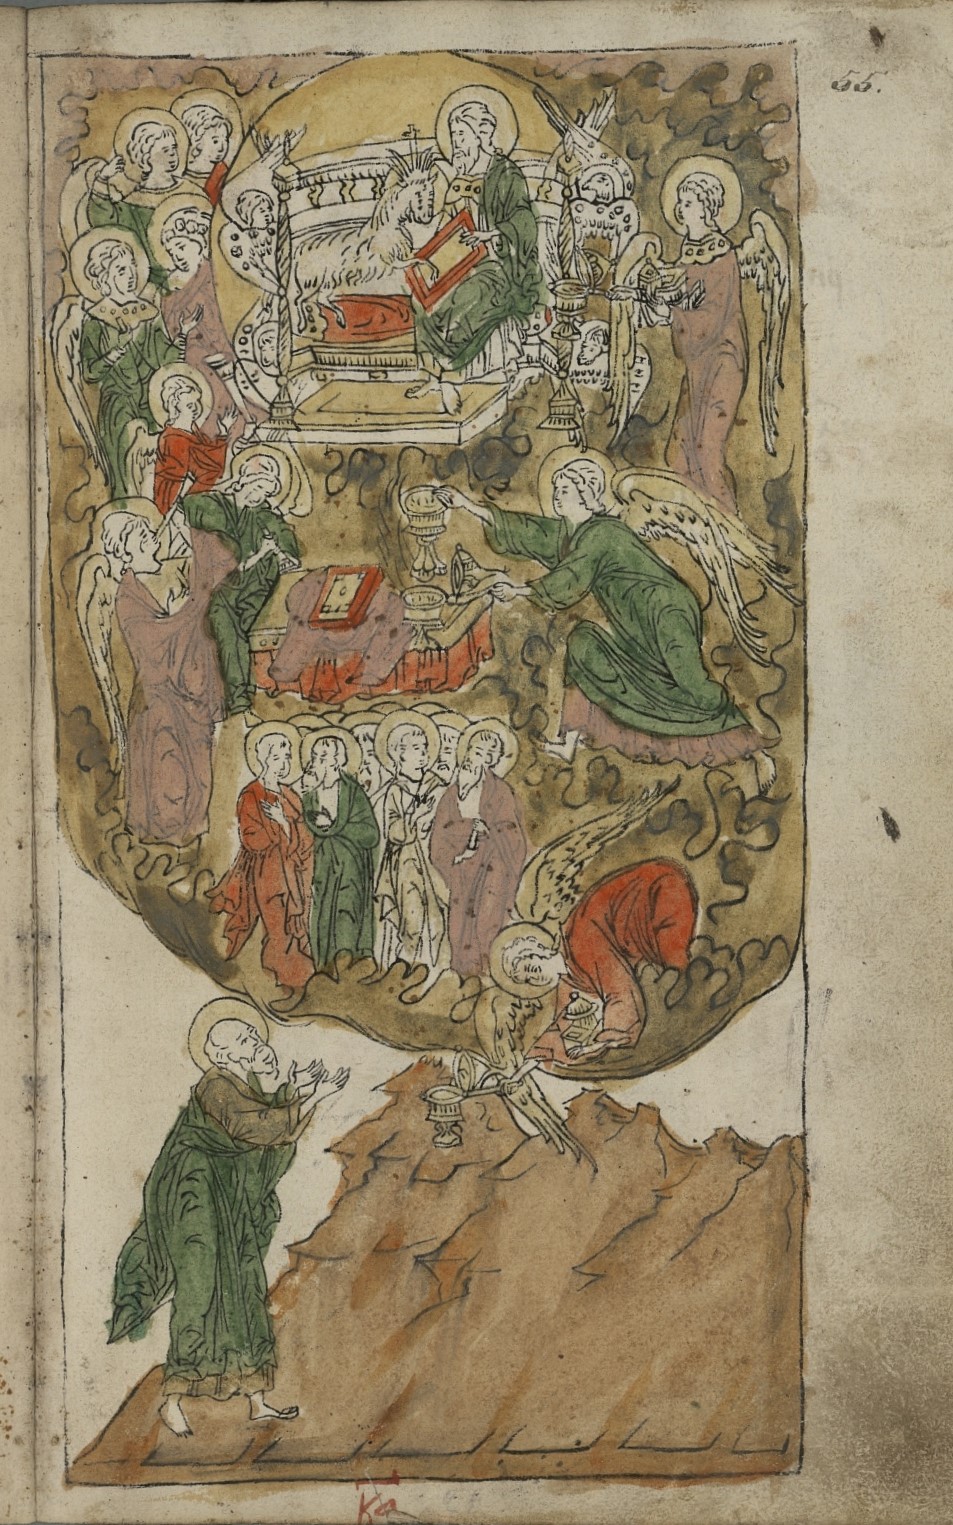 55.
к҃а